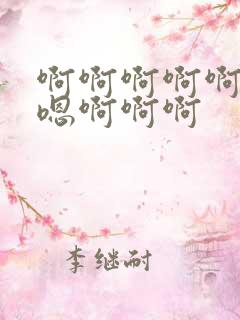 啊啊啊啊啊
嗯啊啊啊
李继耐